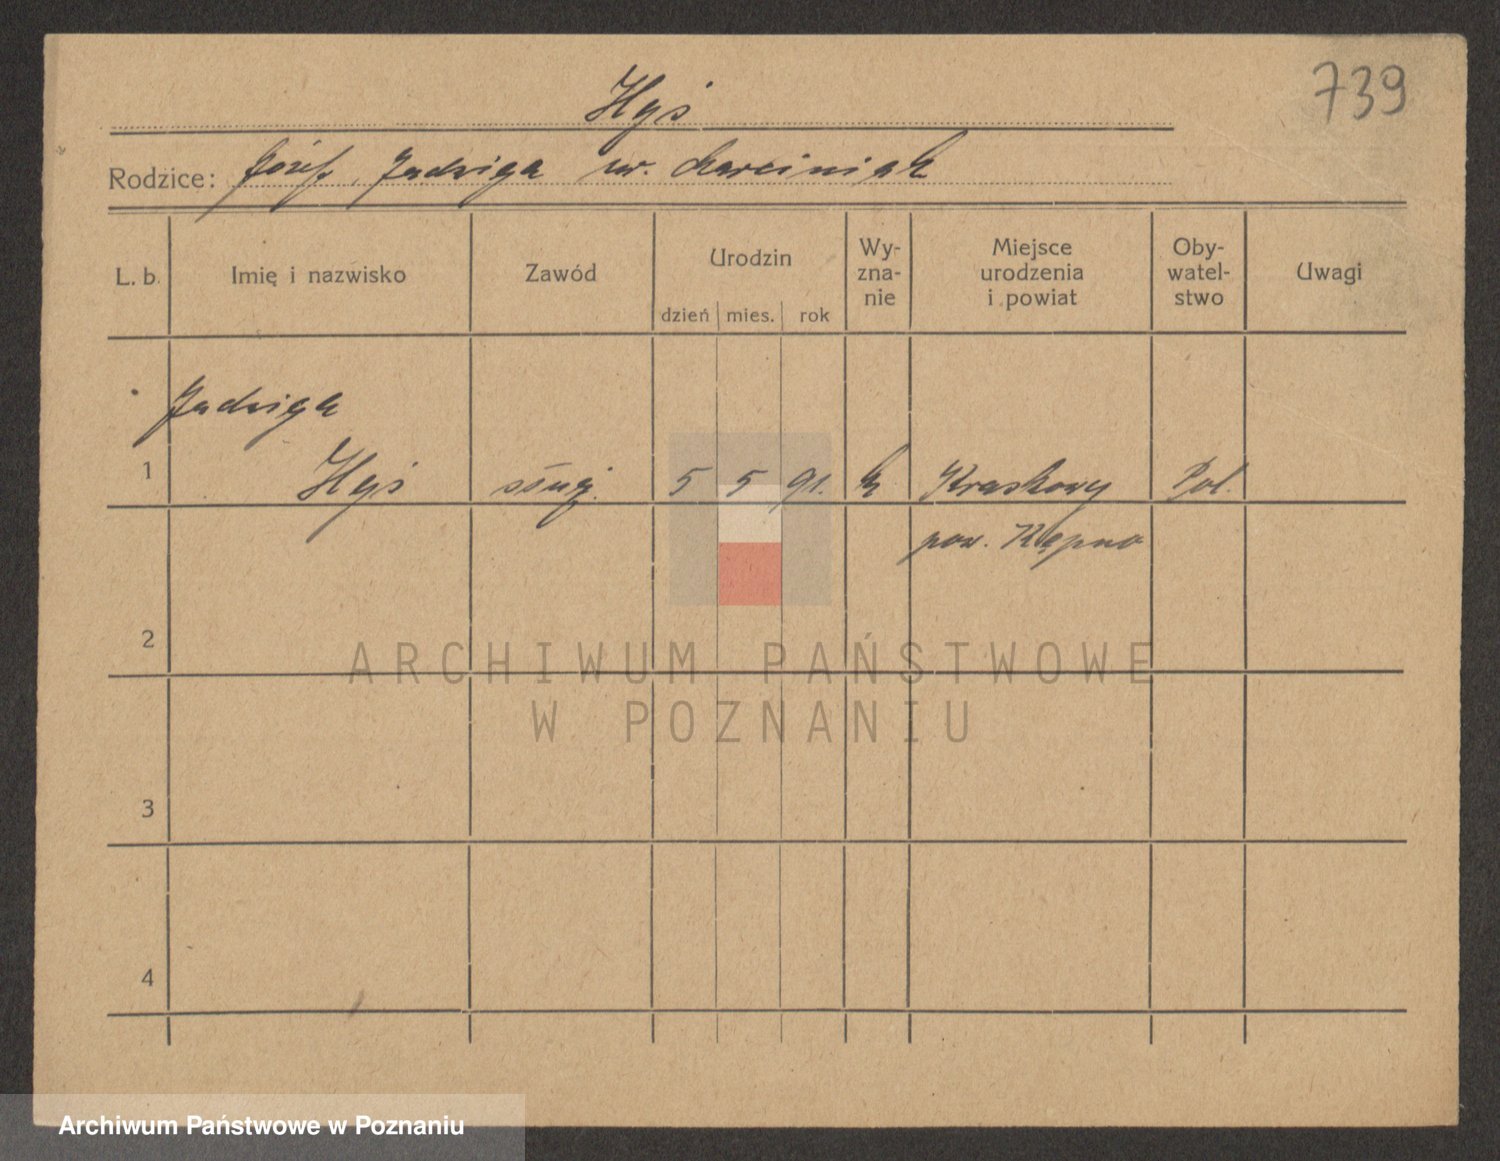 739
Hyś
Rodzice: Józef, Jadwiga ur. Marciniak
L. b. Imię i nazwisko Zawód Urodzin dzień mies. rok Wy-zna-nie Miejsce urodzenia i powiat Oby-watel-stwo Uwagi
Jadwiga
1 Hyś służ. 5 5 91. k Kraskowy Pol.
pow. Kępno
2
ARCHIWUM PAŃSTWOWE
W POZNANIU
3
4
Archiwum Państwowe w Poznaniu